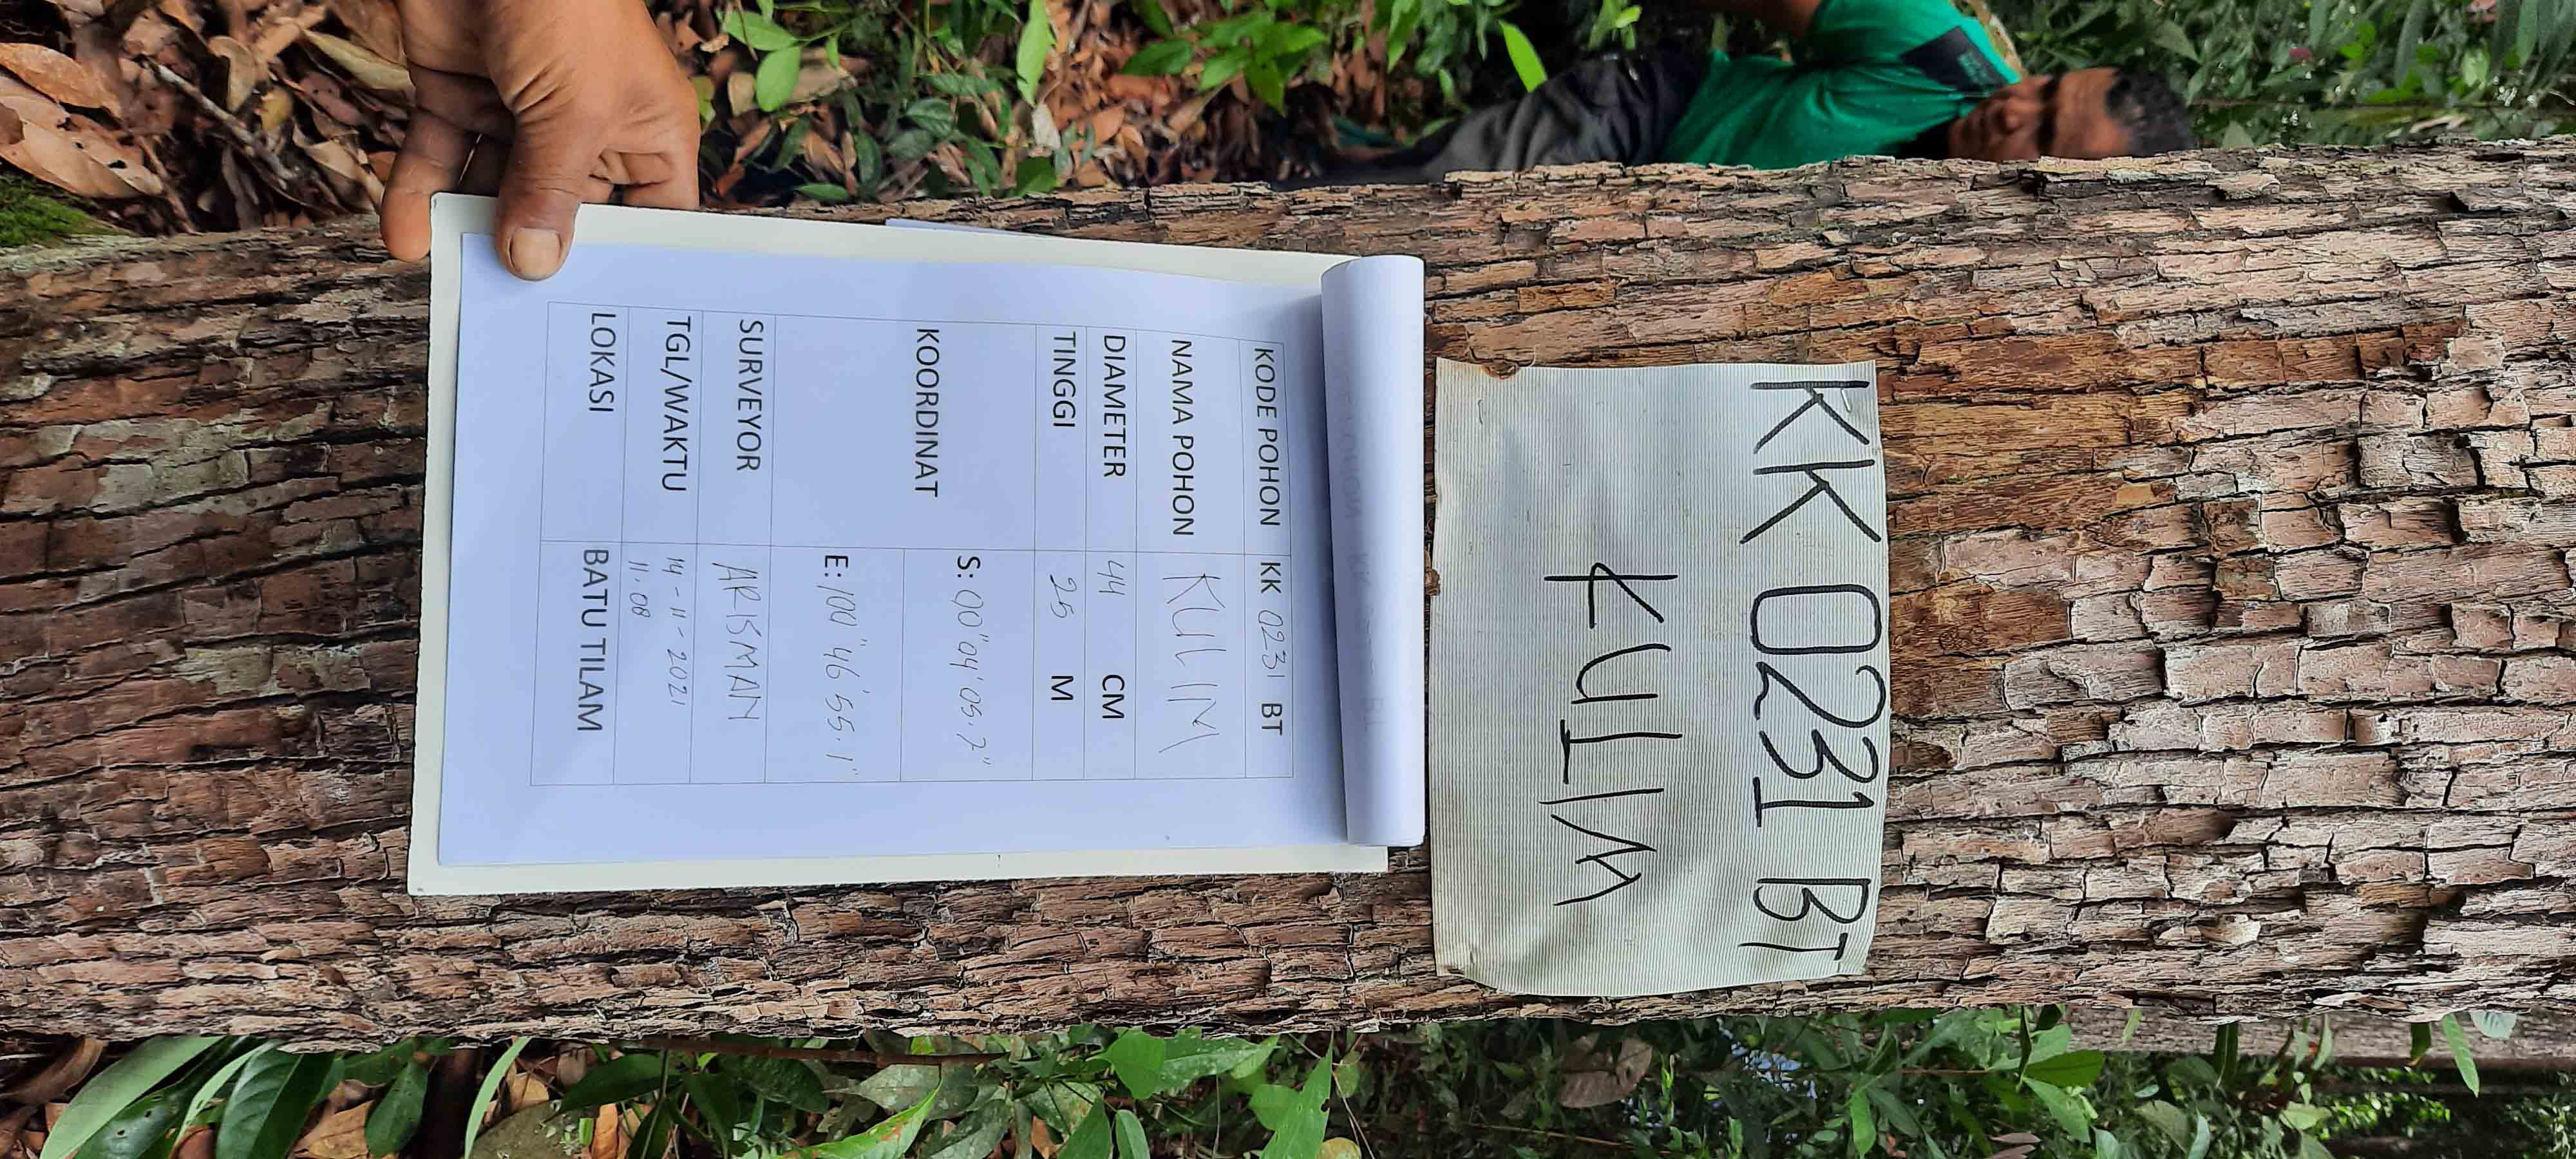 KK 0231 BT
KULIM
KODE POHON KK 0231 BT
NAMA POHON KULIM
DIAMETER 44 CM
TINGGI 25 M
KOORDINAT S: 00° 04' 05.7"
E: 100° 46' 55.1"
SURVEYOR ARISMAN
TGL/WAKTU 14 - 11 - 2021
11.08
LOKASI BATU TILAM